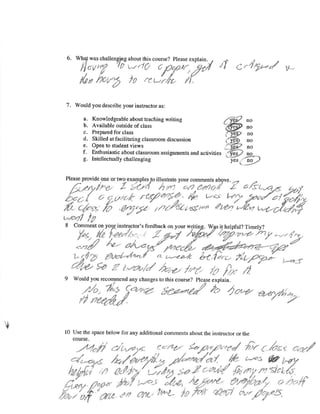 6. What was challenging about this course? Please explain.
Having to write a paper, get it critiqued &
then having to rewrite it.
7. Would you describe your instructor as:
a. Knowledgeable about teaching writing yes no
b. Available outside of class yes no
c. Prepared for class yes no
d. Skilled at facilitating classroom discussion yes no
e. Open to student views yes no
f. Enthusiastic about classroom assignments and activities yes no
g. Intellectually challenging yes no
Please provide one or two examples to illustrate your comments above.
Everytime I sent him an email I always got
back a quick response. He was very good at getting
the class to engage in discussion even when we didn't
want to
8 Comment on your instructor's feedback on your writing. Was it helpful? Timely?
Yes, the feedback I got helped improve my writing
and he always made
was
due so I would have time to fix it.
9 Would you recommend any changes to this course? Please explain.
No, this course seemed to have everything
it needed.
10 Use the space below for any additional comments about the instructor or the
course.
Matt always came so prepared for class and
always had everything planned out. He was very
helpful in editing writing so I could fix my mistakes.
Every paper that was due, he gave everybody a half
hour off one on one time to talk about our papers.